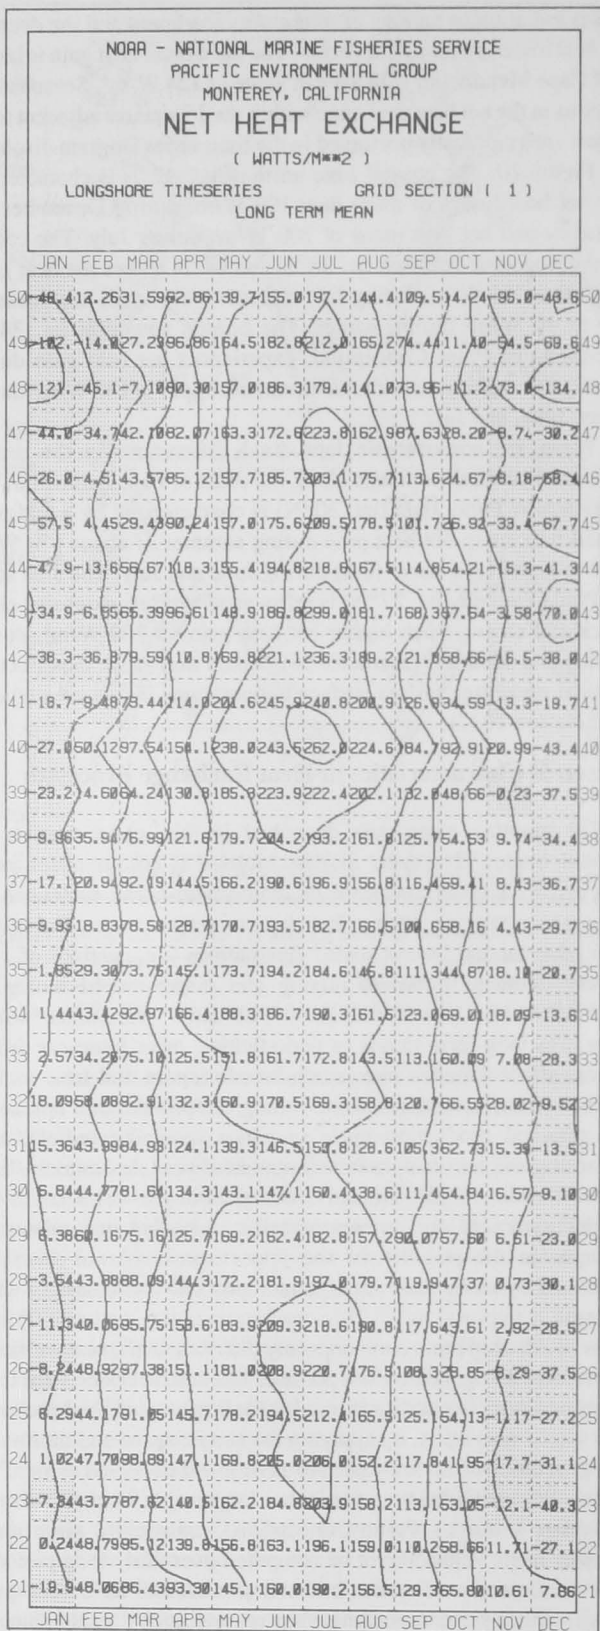 NOAA - NATIONAL MARINE FISHERIES SERVICE
PACIFIC ENVIRONMENTAL GROUP
MONTEREY, CALIFORNIA
NET HEAT EXCHANGE
( WATTS/M**2 )
LONGSHORE TIMESERIES GRID SECTION ( 1 )
LONG TERM MEAN
JAN FEB MAR APR MAY JUN JUL AUG SEP OCT NOV DEC
50 12.26 31.59 62.86 139.7 155.0 197.2 144.4 109.5 14.24 -95.0 50
49 -102. -14.0 27.29 96.86 164.5 182.8 212.0 165.2 74.44 11.40 -54.5 -69.6 49
48 -121. -45.1 -7.10 157.0 186.3 179.4 141.0 73.96 -11.2 -73.0 -134. 48
47 -44.0 -34.7 42.10 82.07 163.3 172.6 223.8 162.9 87.63 28.20 -30.2 47
46 -26.0 -4.51 43.57 85.12 157.7 185.7 203.1 175.7 113.6 24.67 -8.18 46
45 -57.5 4.45 29.43 90.24 157.0 175.6 209.5 178.5 101.7 26.92 -33.4 -67.7 45
44 -47.9 -13.6 56.67 118.3 155.4 194.8 218.6 167.5 114.8 54.21 -15.3 -41.3 44
43 -34.9 -6.55 65.39 96.61 148.9 186.8 299.0 168.3 57.64 -3.58 -70.0 43
42 -38.3 -36.8 79.59 110.8 169.8 221.1 236.3 189.2 121.8 58.66 -16.5 -38.0 42
41 -18.7 -9.48 73.44 114.0 201.6 245.9 240.8 200.9 126.9 34.59 -13.3 -19.7 41
40 -27.0 50.12 97.54 238.0 243.6 262.0 224.6 184.7 92.91 20.99 -43.4 40
39 -23.2 14.60 64.24 130.8 185.8 223.9 222.4 202.1 132.0 48.66 -0.23 -37.5 39
38 -9.96 35.94 76.99 121.6 179.7 204.2 193.2 161.8 125.7 54.53 9.74 -34.4 38
37 -17.1 20.94 92.19 144.5 166.2 190.6 196.9 156.8 116.4 59.41 8.43 -36.7 37
36 -9.93 18.83 78.50 128.7 170.7 193.5 182.7 166.5 100.6 58.16 4.43 -29.7 36
35 -1.85 29.30 73.75 145.1 173.7 194.2 184.6 145.8 111.3 44.87 18.10 -20.7 35
34 1.44 43.42 92.97 166.4 188.3 186.7 190.3 161.5 123.0 69.01 18.09 -13.6 34
33 2.57 34.26 75.10 125.5 151.8 161.7 172.8 143.5 113.1 60.09 7.08 -28.3 33
32 18.09 58.08 92.91 132.3 160.9 170.5 169.3 158.8 120.7 66.55 28.02 -9.52 32
31 15.36 43.99 84.93 124.1 139.3 146.5 128.6 105.3 62.73 15.39 -13.5 31
30 5.84 44.77 81.64 134.3 143.1 147.1 160.4 138.6 111.4 54.84 16.57 -9.10 30
29 6.38 60.16 75.16 125.7 169.2 162.4 182.8 157.2 90.07 57.50 6.51 -23.0 29
28 -3.54 43.88 88.09 144.3 172.2 181.9 197.0 179.7 119.9 47.37 0.73 -30.1 28
27 -11.3 40.06 95.75 183.9 209.3 218.6 190.8 117.6 43.61 2.92 -28.5 27
26 -8.24 48.92 97.38 151.1 181.0 208.9 220.7 176.5 108.3 -8.29 -37.5 26
25 6.29 44.17 91.05 145.7 178.2 194.5 212.4 165.5 125.1 54.13 -1.17 -27.2 25
24 1.02 47.70 98.89 147.1 169.8 205.0 206.0 152.2 117.8 41.95 -17.7 -31.1 24
23 -7.34 43.77 87.82 140.5 162.2 184.8 203.9 158.2 113.1 53.05 -12.1 -40.3 23
22 0.24 48.79 95.12 139.8 156.8 163.1 196.1 159.0 110.2 58.66 11.71 -27.1 22
21 -19.9 48.06 86.43 93.30 145.1 160.0 190.2 156.5 129.3 65.80 10.61 7.86 21
JAN FEB MAR APR MAY JUN JUL AUG SEP OCT NOV DEC